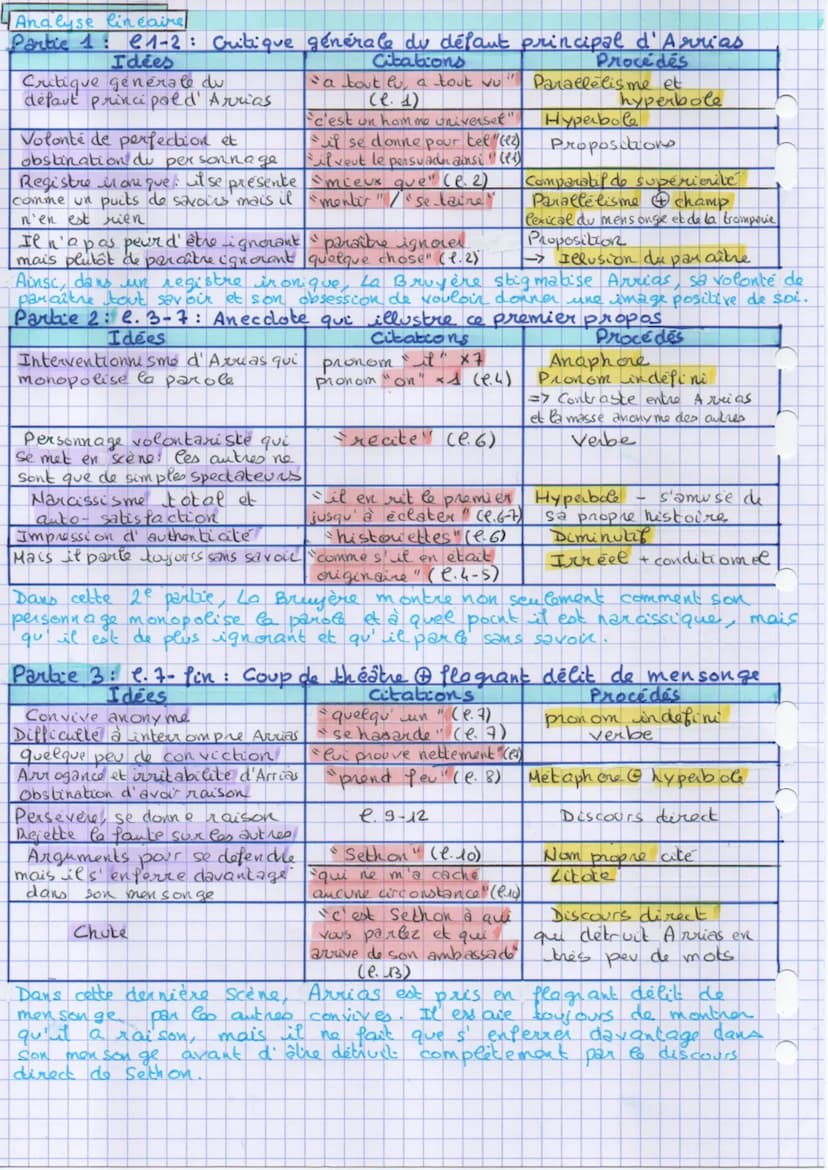 Analyse linéaire
Partie 1 : l.1-2 : Critique générale du défaut principal d'Arrias
Idées Citations Procédés
Critique générale du "a tout lu, a tout vu" Parallélisme et
défaut principal d'Arrias (l. 1) hyperbole
"c'est un homme universel" Hyperbole
Volonté de perfection et "il se donne pour tel" (l2) Propositions
obstination du personnage "il veut le persuader ainsi" (l1)
Registre ironique : il se présente "mieux que" (l. 2) Comparatif de supériorité
comme un puits de savoirs mais il "mentir" / "se taire" Parallélisme ⊕ champ
n'en est rien lexical du mensonge et de la tromperie
Il n'a pas peur d'être ignorant "paraître ignorer Proposition
mais plutôt de paraître ignorant quelque chose" (l.2) → Illusion du paraître
Ainsi, dans un registre ironique, La Bruyère stigmatise Arrias, sa volonté de
paraître tout savoir et son obsession de vouloir donner une image positive de soi.
Partie 2 : l. 3-7 : Anecdote qui illustre ce premier propos
Idées Citations Procédés
Interventionnisme d'Arrias qui pronom "il" x7 Anaphore
monopolise la parole pronom "on" x1 (l.4) Pronom indéfini
=> Contraste entre Arrias
et la masse anonyme des autres
Personnage volontariste qui "récite" (l.6) Verbe
se met en scène : les autres ne
sont que de simples spectateurs
Narcissisme total et "il en rit le premier Hyperbole - s'amuse de
auto-satisfaction jusqu'à éclater" (l.6-7) sa propre histoire
Impression d'authenticité "historiettes" (l.6) Diminutif
Mais il parle toujours sans savoir "comme s'il en était Irréel + conditionnel
originaire" (l.4-5)
Dans cette 2e partie, La Bruyère montre non seulement comment son
personnage monopolise la parole et à quel point il est narcissique, mais
qu'il est de plus ignorant et qu'il parle sans savoir.
Partie 3 : l. 7- fin : Coup de théâtre ⊕ flagrant délit de mensonge
Idées Citations Procédés
Convive anonyme "quelqu'un" (l.7) pronom indéfini
Difficulté à interrompre Arrias "se hasarde" (l. 7) verbe
quelque peu de conviction "lui prouve nettement" (l7)
Arrogance et irritabilité d'Arrias "prend feu" (l. 8) Métaphore ⊕ hyperbole
Obstination d'avoir raison
Persévère, se donne raison l. 9-12 Discours direct
Rejette la faute sur les autres
Arguments pour se défendre "Sethon" (l.10) Nom propre cité
mais il s'enferre davantage "qui ne m'a caché Litote
dans son mensonge aucune circonstance" (l.12)
"c'est Sethon à qui Discours direct
Chute vous parlez et qui qui détruit Arrias en
arrive de son ambassade" très peu de mots
(l. 13)
Dans cette dernière scène, Arrias est pris en flagrant délit de
mensonge par les autres convives. Il essaie toujours de montrer
qu'il a raison, mais il ne fait que s'enferrer davantage dans
son mensonge avant d'être détruit complètement par le discours
direct de Sethon.